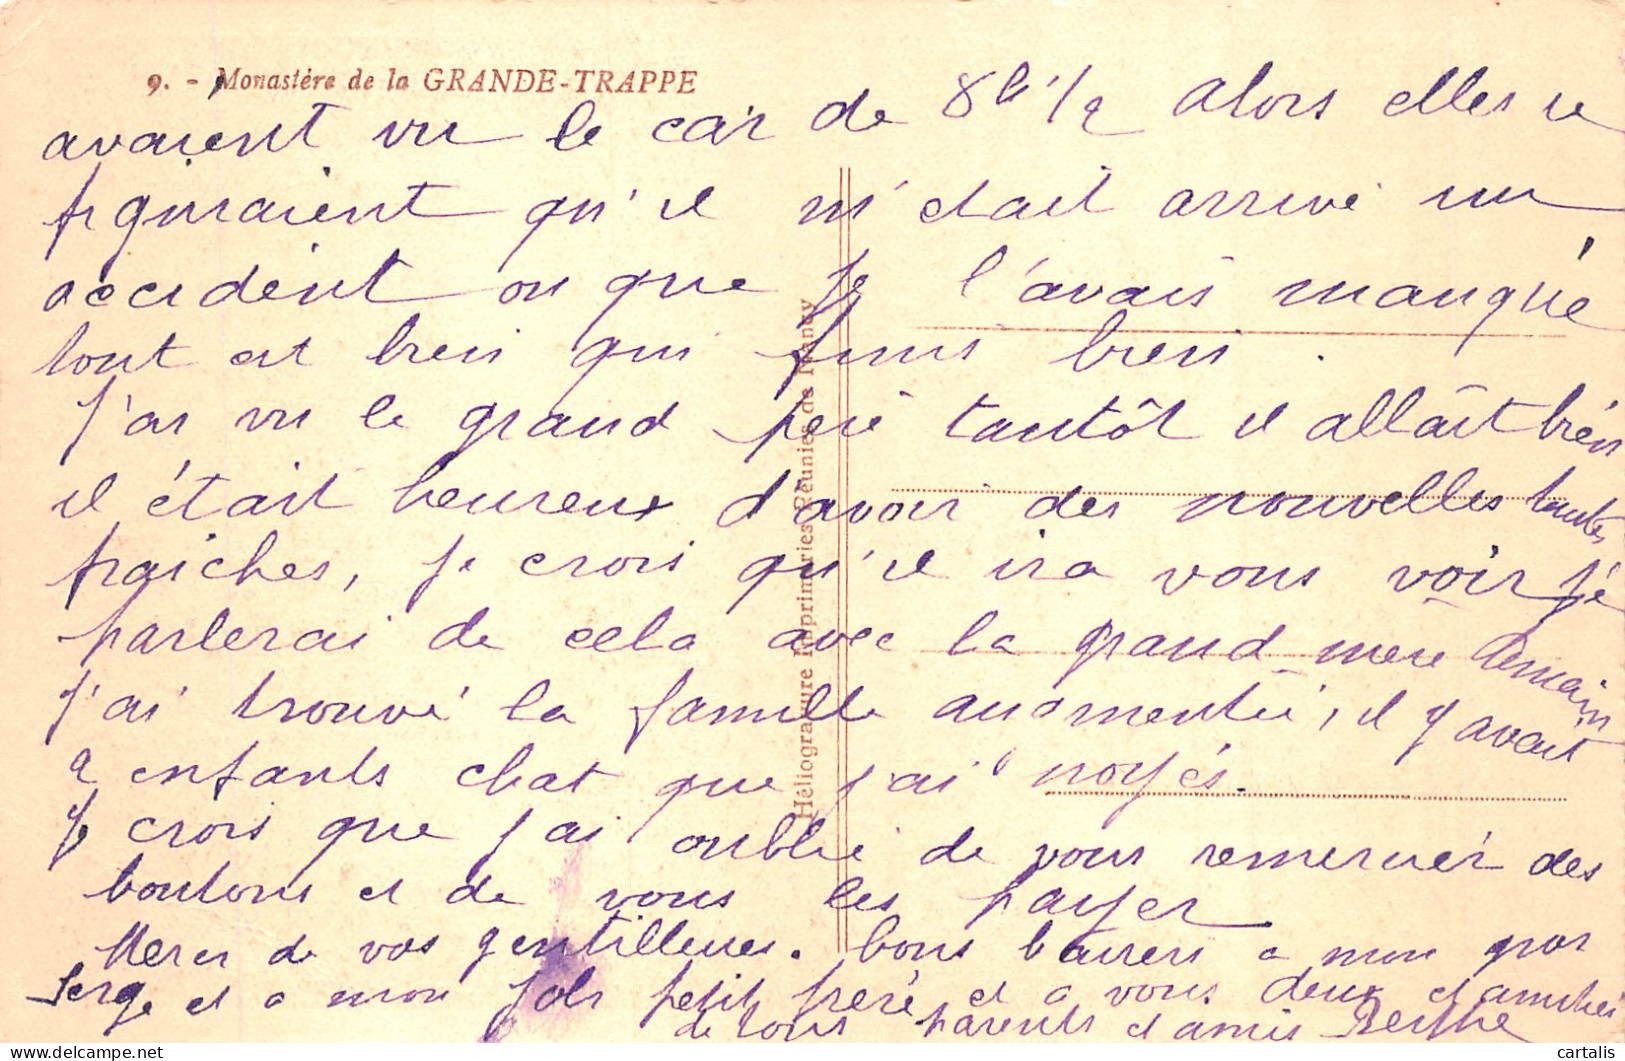 9. - Monastère de la GRANDE-TRAPPE
avaient vu le car de 8h 1/2 Alors elles se
figuraient qu'il m'était arrivé un
accident ou que je l'avais manqué
tout est bien qui finis bien.
J'ai vu le grand père tantôt il allait bien
il était heureux d'avoir des nouvelles toutes
fraiches, je crois qu'il ira vous voir je
parlerai de cela avec la grand mere demain
J'ai trouvé la famille augmentée, il y avait
2 enfants chat que j'ai noyés.
Je crois que j'ai oublié de vous remercier des
boutons et de vous les payer
Merci de vos gentillesses. bons baisers a mon gros
Serge et a mon joli petit frere et a vous deux et amitiés
de tous parents et amis Berthe
Héliogravure Imprimeries Réunies de Nancy
cartalis